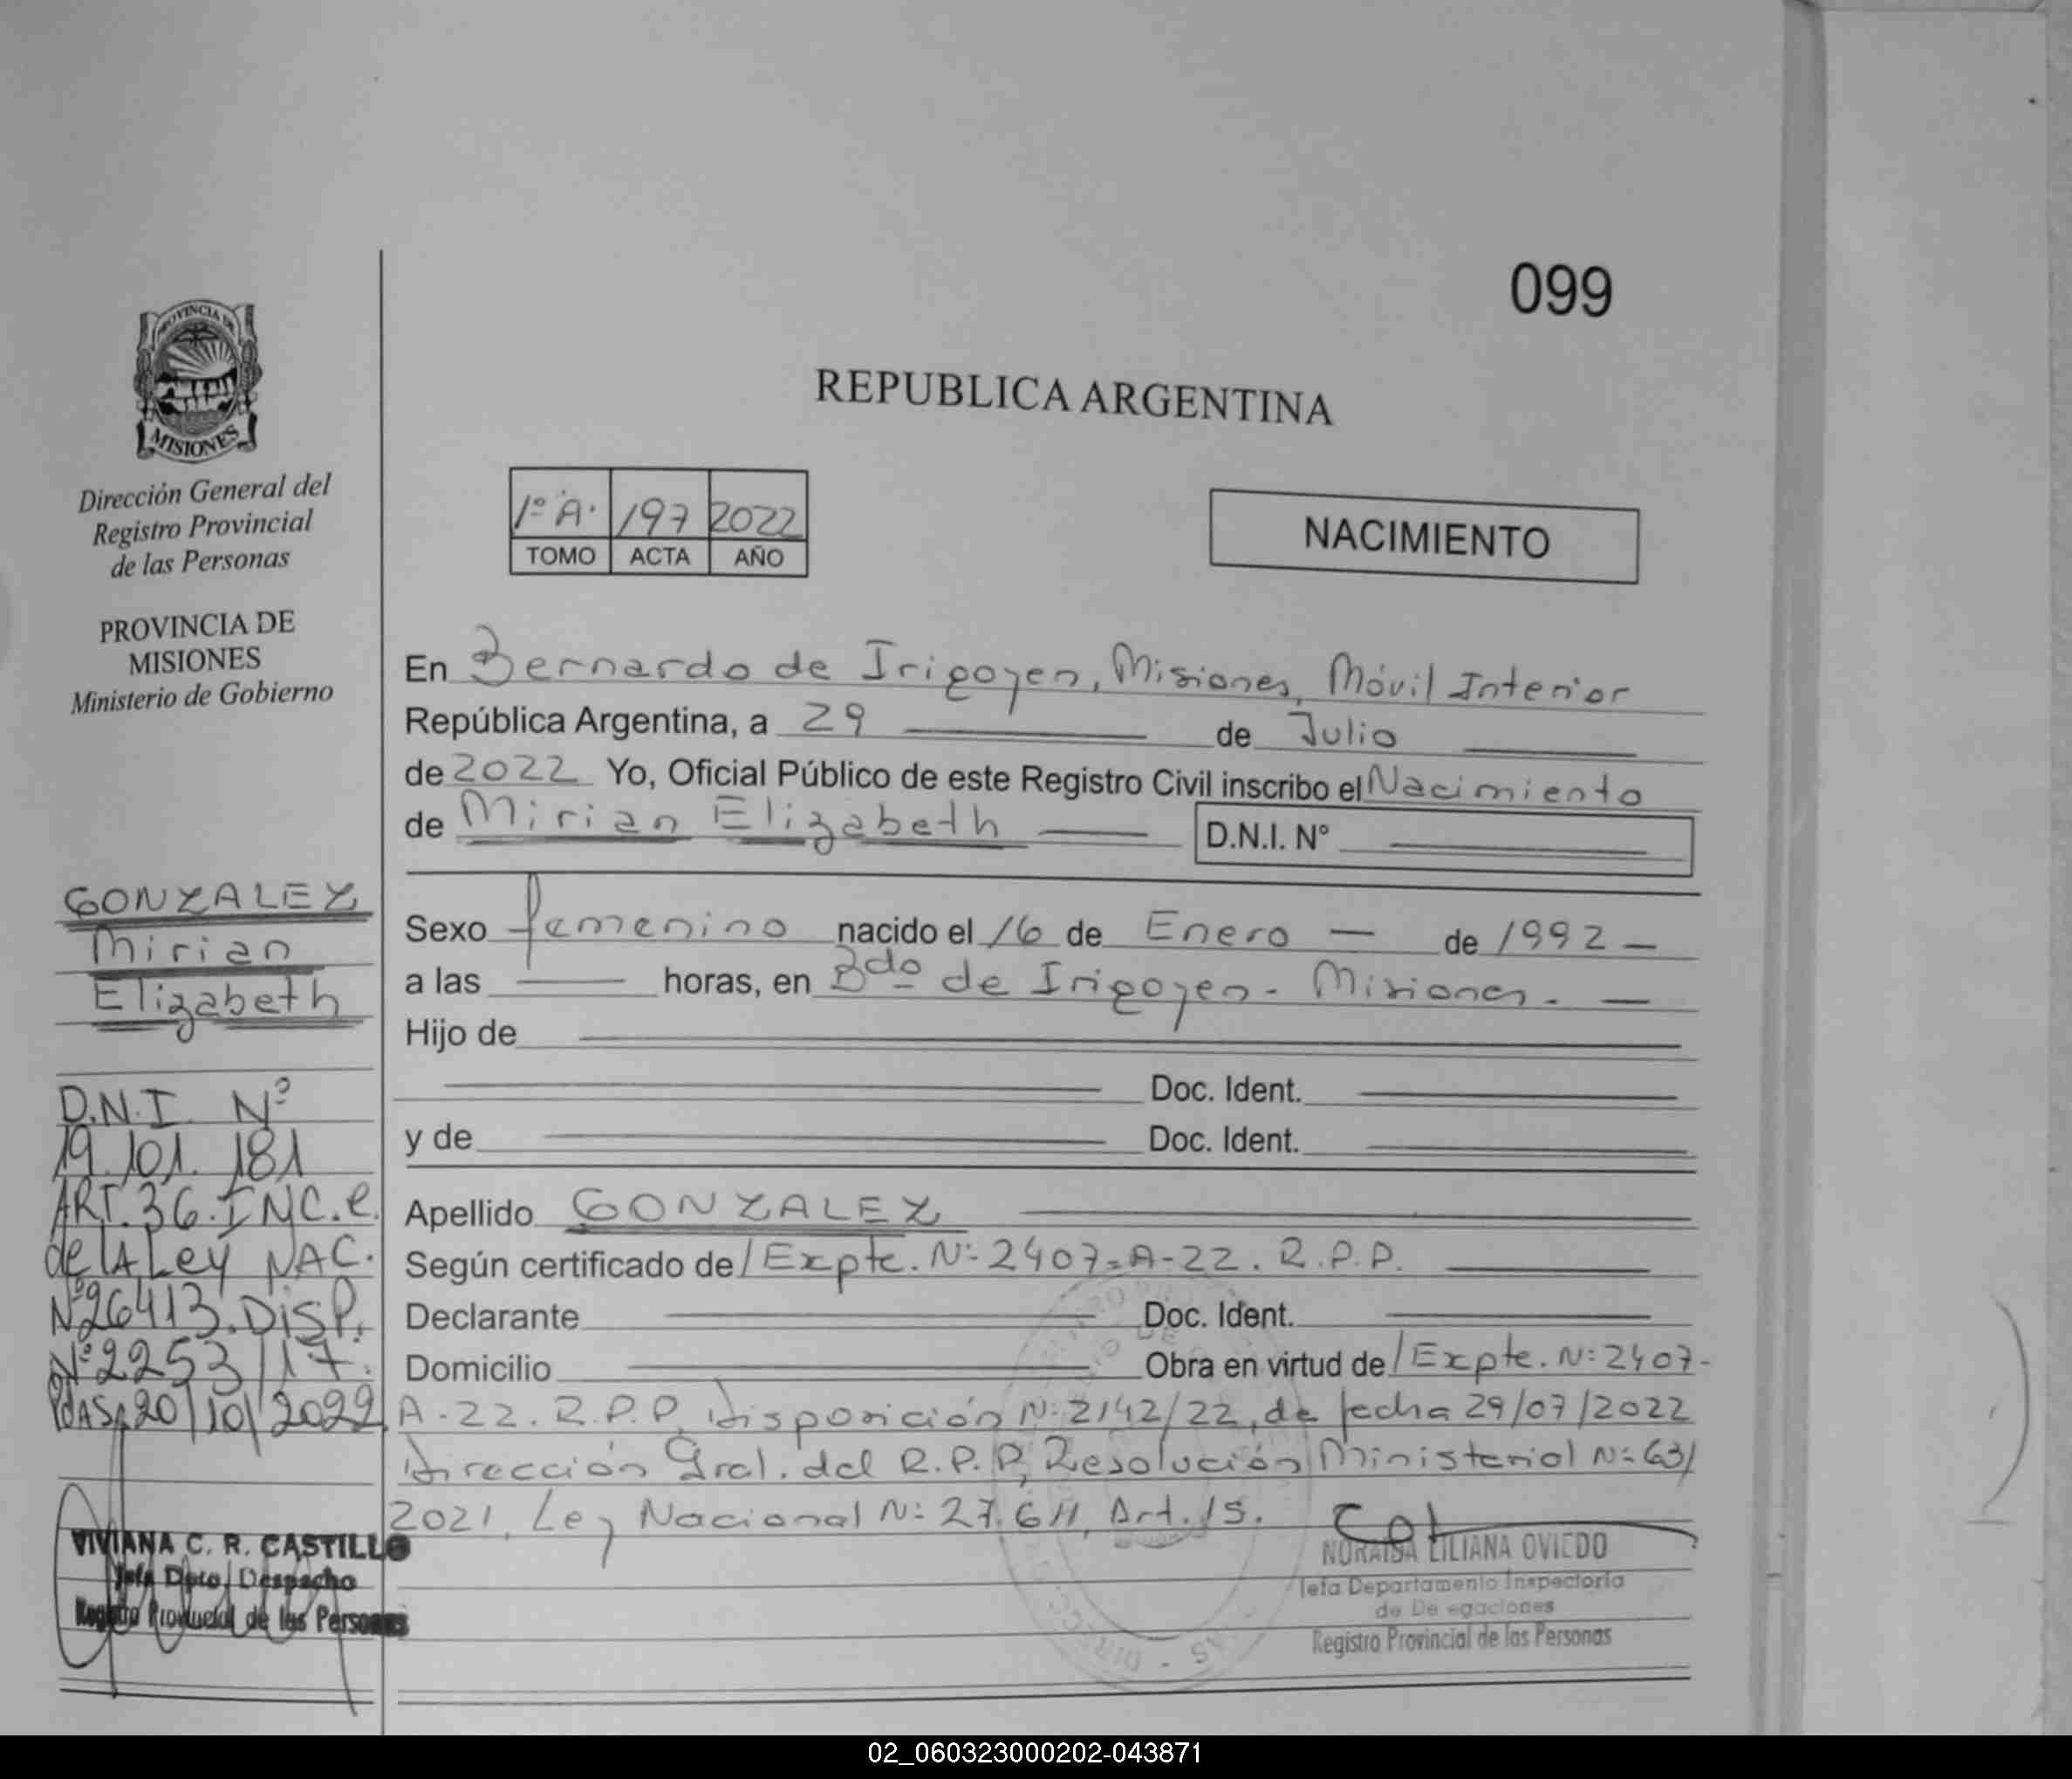 099
REPUBLICA ARGENTINA
PROVINCIA DE
MISIONES
Dirección General del
Registro Provincial
de las Personas
PROVINCIA DE
MISIONES
Ministerio de Gobierno
1º A. 197 2022
TOMO ACTA AÑO
NACIMIENTO
En Bernardo de Irigoyen, Misiones, Móvil Interior
República Argentina, a 29 de Julio
de 2022 Yo, Oficial Público de este Registro Civil inscribo el Nacimiento
de Mirian Elizabeth D.N.I. Nº
Sexo femenino nacido el 16 de Enero de 1992
a las horas, en Bdo de Irigoyen - Misiones.
Hijo de
Doc. Ident.
y de Doc. Ident.
Apellido GONZALEZ
Según certificado de/Expte. Nº 2407-A-22. R.P.P.
Declarante Doc. Ident.
Domicilio Obra en virtud de/Expte. Nº 2407-
A-22. R.P.P, Disposición Nº 2142/22, de fecha 29/07/2022
Dirección Gral. del R.P.P, Resolución Ministerial Nº 63/
2021, Ley Nacional Nº 27.611, Art. 15.
NORAISA LILIANA OVIEDO
Jefa Departamento Inspectoria
de Delegaciones
Registro Provincial de las Personas
GONZALEZ
Mirian
Elizabeth
D.N.I Nº
19.101.181
ART.36.INC.e.
de lA Ley NAC.
Nº26413.DISP.
Nº2253/17.
PdAS,20/10/2022.
VIVIANA C. R. CASTILLO
Jefa Dpto. Despacho
Registro Provincial de las Personas
02_060323000202-043871